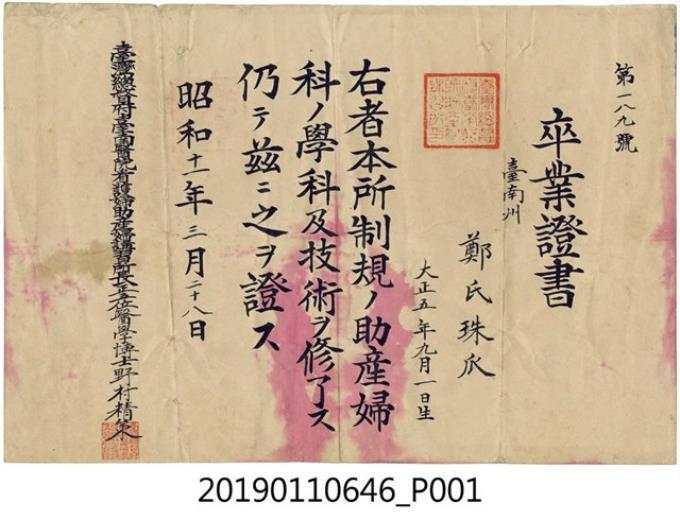 第一八九號
卒業證書
臺南州
鄭氏珠瓜
大正五年九月一日生
右者本所制規ノ助産婦
科ノ學科及技術ヲ修了ス
仍テ茲ニ之ヲ證ス
昭和十一年三月二十八日
臺灣總督府臺南醫院看護婦助産婦講習所長正五位醫學博士野村精策
20190110646_P001